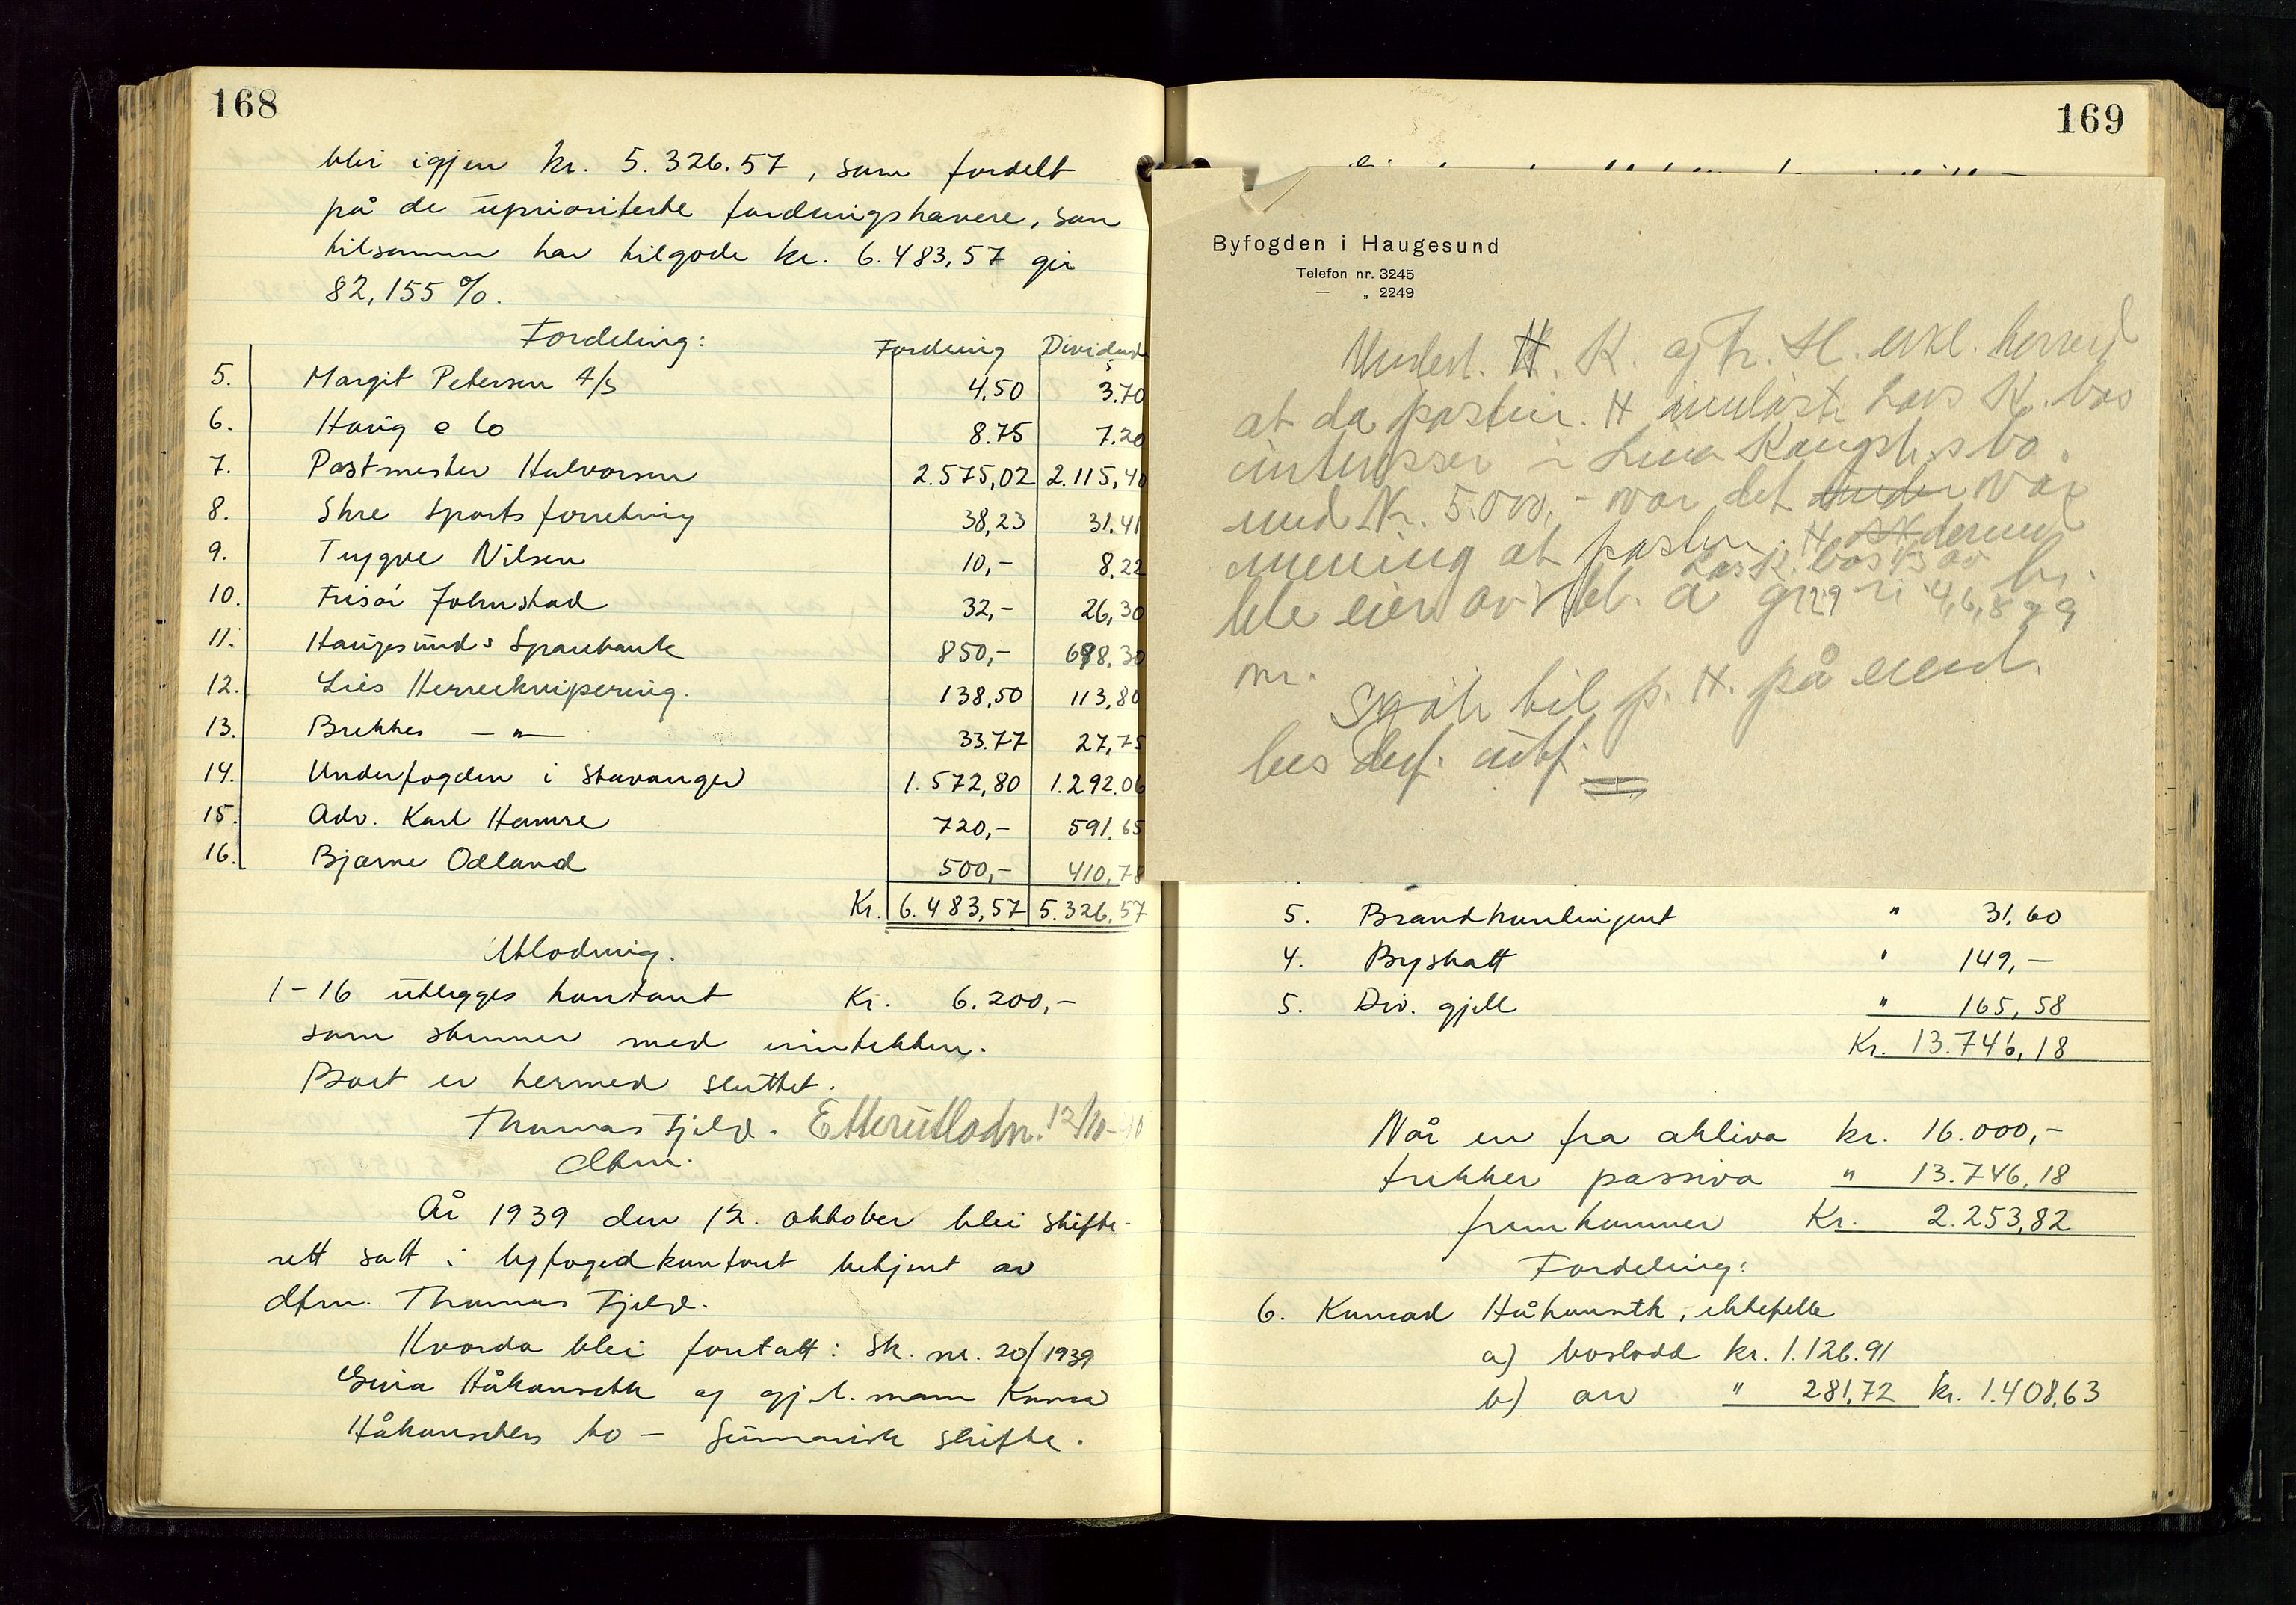 168
blir igjen kr. 5.326.57, som fordelt
på de uprioriterte fordringshavere, som
tilsammen har tilgode kr. 6.483,57 gir
82,155 %.
Fordeling: Fordring Dividende
5. Margit Petersen A/S 4,50 3.70
6. Haug & Co 8.75 7.20
7. Postmester Halvorsen 2.575,02 2.115,40
8. Skre Sportsforretning 38,23 31.41
9. Trygve Nilsen 10,- 8,22
10. Frisør Johnstad 32,- 26,30
11. Haugesunds Sparebank 850,- 698,30
12. Lies Herreekvipering. 138,50 113,80
13. Brekkes — " — 33.77 27,75
14. Underfogden i Stavanger 1.572,80 1.292.06
15. Adv. Karl Hamre 720,- 591.65
16. Bjarne Odland 500,- 410,78
Kr. 6.483,57 5.326,57
Utlodning.
1-16 utlegges kontant Kr. 6.200,-
som stemmer med inntekten.
Boet er hermed sluttet.
Thomas Fjeld. Etterutlodn. 12/10-
dfm.
År 1939 den 12. oktober blei skifte-
rett satt i byfogedkontoret betjent av
dfm. Thomas Fjeld.
Hvorda blei foretatt: Sk. nr. 20/1939
Håkonseths bo – Summarisk skifte.
169
Byfogden i Haugesund
Telefon nr. 3245
— „ 2249
Undert. H. K. og Fr. H. erkl. herved
at da pastor. H innløste Lars K. bos
interesser i Lina s bo
med Kr. 5.000,- var det under vår
mening at pastor H dermed
Lars K. bos av
ble eier av
nr.
p. H. på
5. Brandkontingent " 31,60
4. Byskatt " 149,—
5. Div. gjeld " 165,58
Kr. 13.746,18
Når en fra aktiva kr. 16.000,-
trekker passiva " 13.746,18
fremkommer Kr. 2.253,82
Fordeling:
6. Konrad Håkonseth, ektefelle
a) boslodd kr. 1.126.91
b) arv " 281,72 kr. 1.408,63